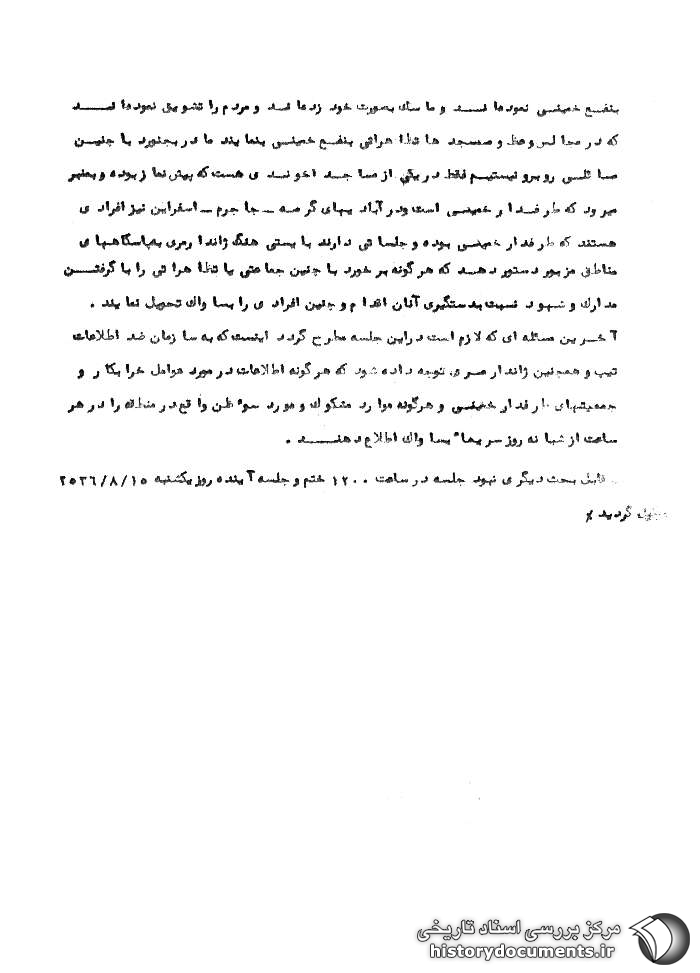 بنفع خمینی نموده‌اند و ماسک بصورت خود زده‌اند و مردم را تشویق نموده‌اند
که در مجالس وعظ و مسجد ها تظاهراتی بنفع خمینی بنمایند ما در بجنورد با چنین
مسائلی روبرو نیستیم فقط در یکی از مساجد اخوندی هست که پیش نماز بوده و بمنبر
میرود که طرفدار خمینی است ودر آباد یهای گرمه ـ جاجرم ـ اسفراین نیز افرادی
هستند که طرفدار خمینی بوده و جلساتی دارند بایستی هنگ ژاندارمری بپاسگاههای
مناطق مزبور دستور دهد که هرگونه برخورد با چنین جماعتی یا تظاهراتی را با گرفتن
مدارک و شهود نسبت بدستگیری آنان اقدام و چنین افرادی را بساواک تحویل نمایند .
آخرین مسئله ای که لازم است دراین جلسه مطرح گردد اینست که به سازمان ضد اطلاعات
تیپ و همچنین ژاندارمری توجه داده شود که هرگونه اطلاعات در مورد عوامل خرابکار و
جمعیتهای طرفدار خمینی و هرگونه موارد مشکوک و مورد سوءظن واقع در منطقه را در هر
ساعت از شبانه روز سریعاً بساواک اطلاع دهند .
قابل بحث دیگری نبود جلسه در ساعت ۱۲۰۰ ختم و جلسه آینده روز یکشنبه ۲۵۳۶/۸/۱۵
گردید ٪
مرکز بررسی اسناد تاریخی
historydocuments.ir